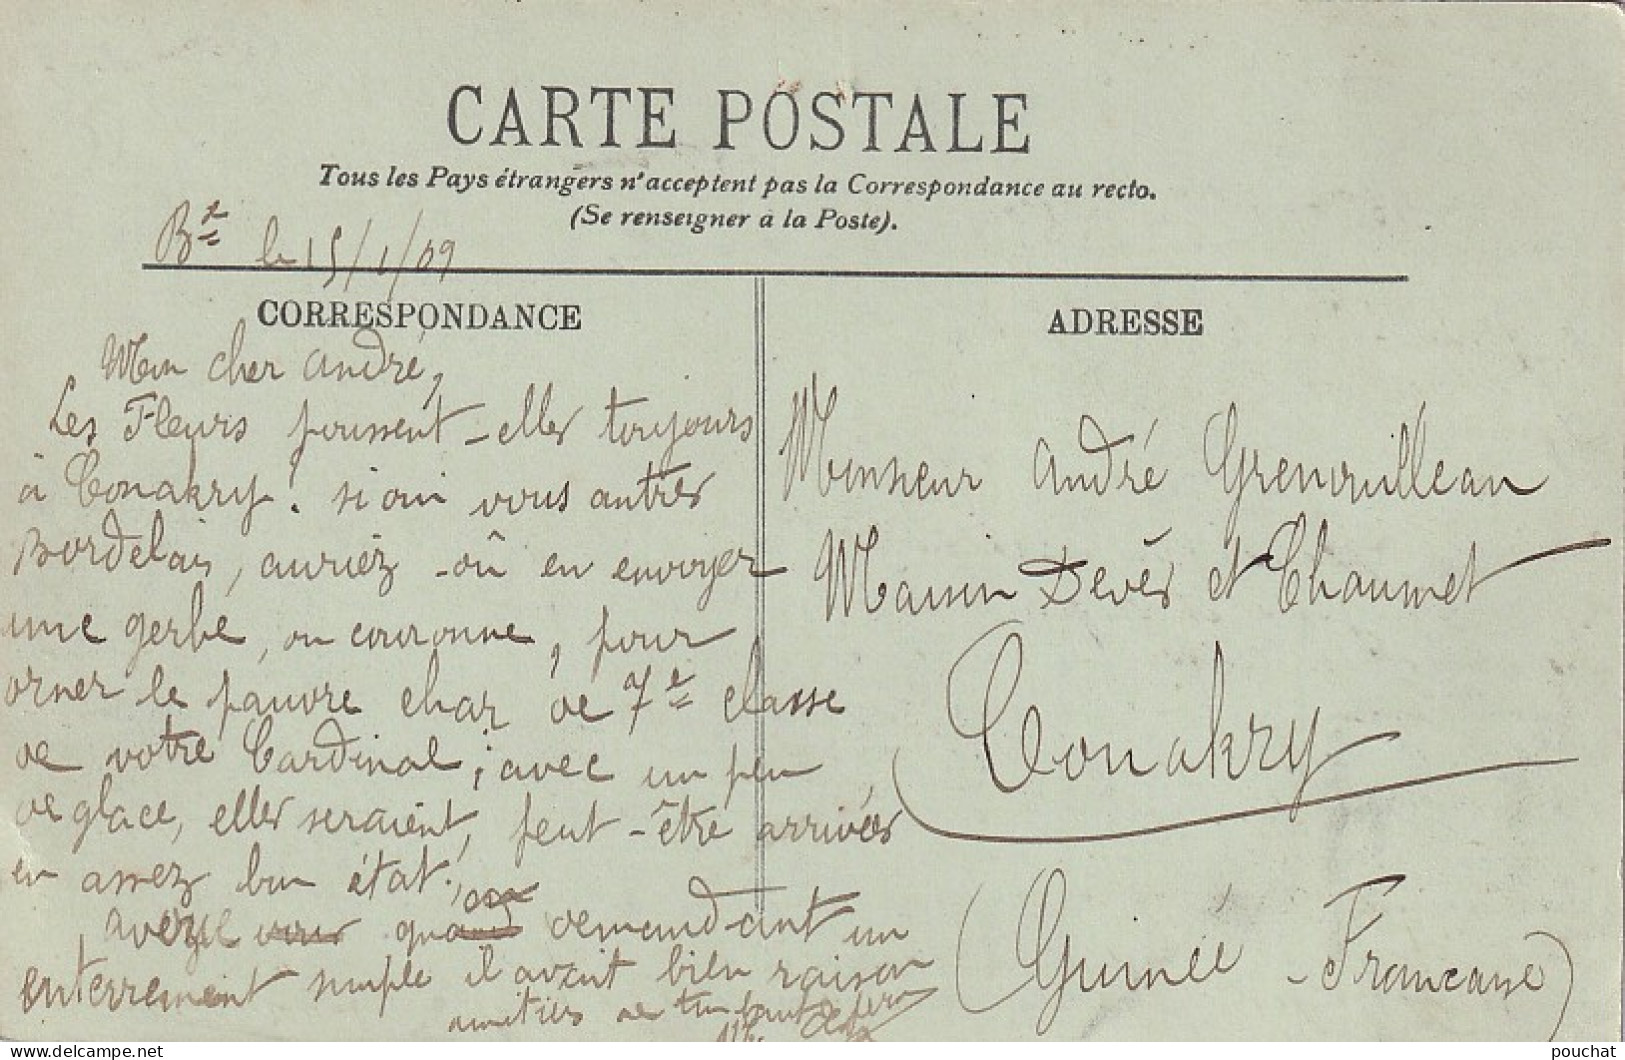 CARTE POSTALE
Tous les Pays étrangers n'acceptent pas la Correspondance au recto.
(Se renseigner à la Poste).
le 15/1/09
CORRESPONDANCE
Mon cher André,
Les Fleurs poussent-elles toujours
à Conakry! si oui vous autres
Bordelais, auriez-dû en envoyer
une gerbe, ou couronne, pour
orner le pauvre char de 7e classe
de votre Cardinal; avec un peu
de glace, elles seraient, peut-être arrivées
en assez bon état.
demandant un
enterrement simple il avait bien raison
amitiés de ton
ADRESSE
Monsieur André Grenouilleau
Maison Devès et Chaumet
Conakry
(Guinée-Française)
pouchat